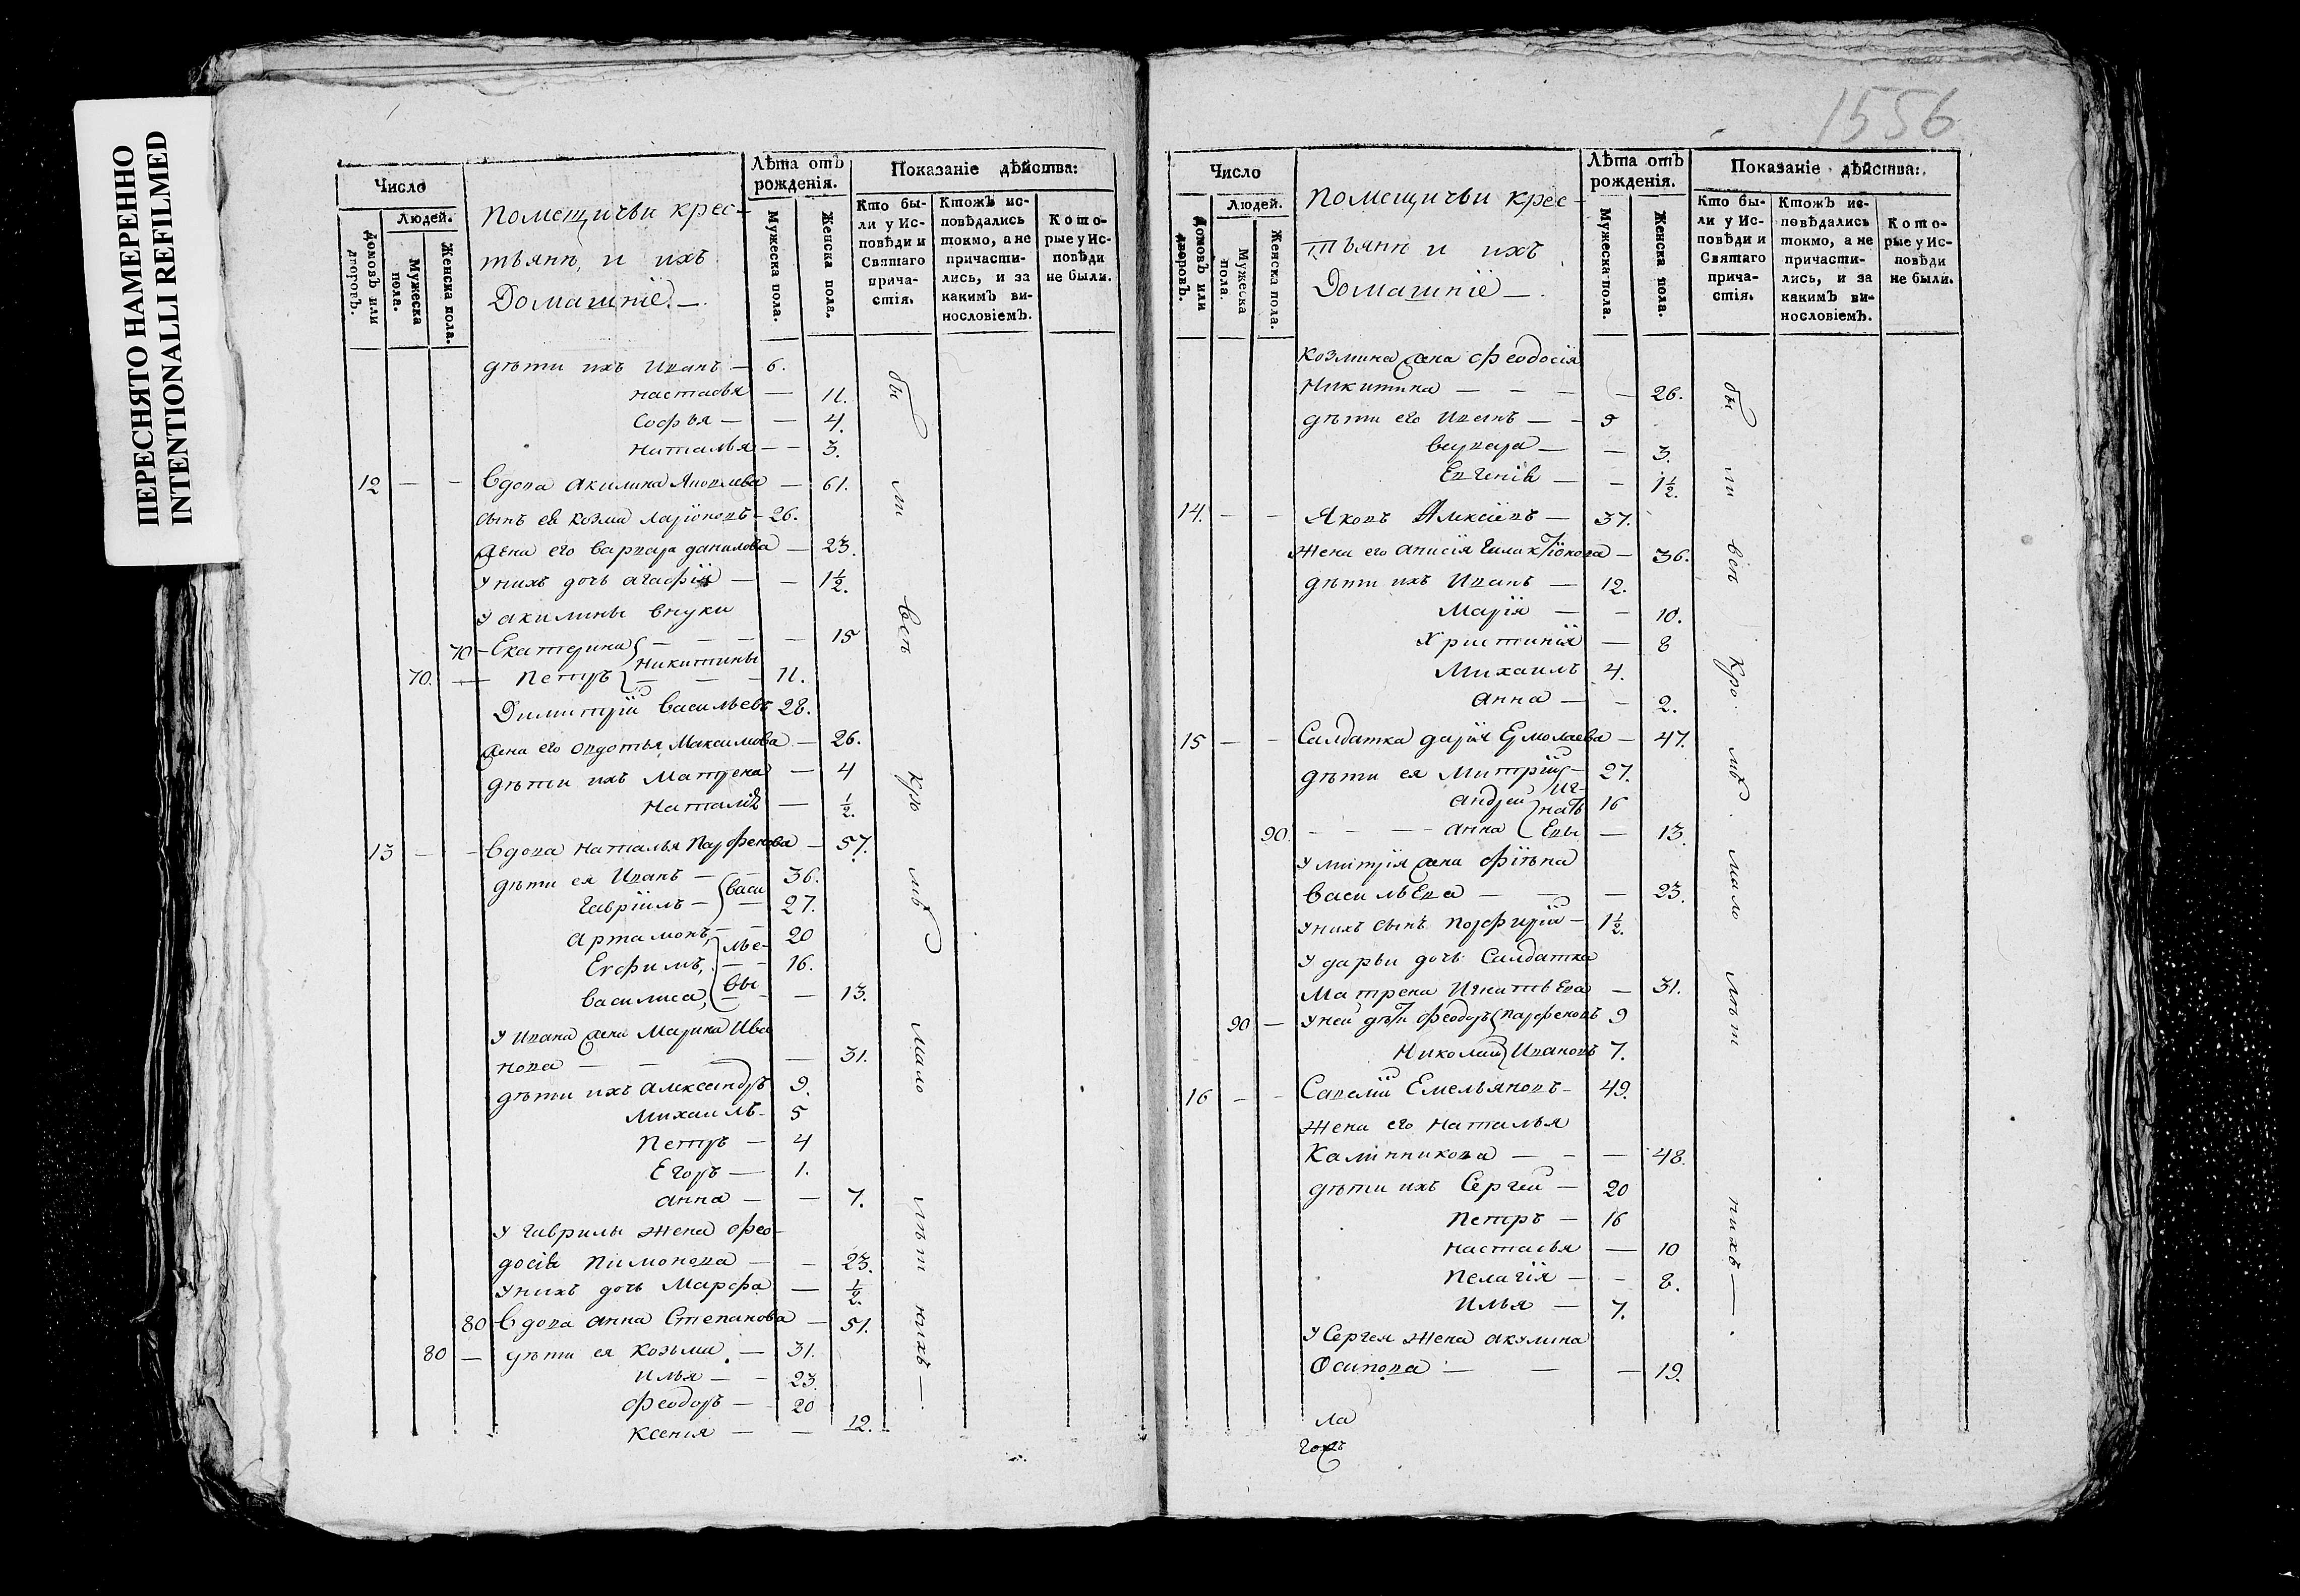 ПЕРЕСНЯТО НАМЕРЕННО
INTENTIONALLI REFILMED
1556
Число
Людей.
Домовъ или дворовъ.
Мужеска пола.
Женска пола.
Помещичьи крес-
тьянп, и ихъ
Домашніе. —
Лѣта отъ рожденія.
Мужеска пола.
Женска пола.
Показаніе дѣйства:
Кто бы-
ли у Ис-
повѣди и
Святаго
прича-
стія.
Ктожъ ис-
повѣдались
токмо, а не
причасти-
лись, и за
какимъ ви-
нословіемъ.
Кото-
рые у Ис-
повѣди
не были.
дѣти ихъ Иванъ — 6.
настасья — 11.
Софья — — 4.
наталья — — 3.
12 — — Вдова акилина Яковлева — 61.
сынъ ея козма ларіоновъ — 26.
жена его варвара данилова — 23.
у нихъ дочь агафія — — 1½.
у акилины внуки
70 — Екатерина — — — 15
70. — Петръ никитины — — 11.
Димитрій васильевъ 28.
жена его овдотья Максимова — 26.
дѣти ихъ Матрена — 4
наталія — ½.
13 — — Вдова наталья парфенова — 57.
дѣти ея Иванъ — — 36.
гавріилъ — васи 27.
артамонъ, — — 20
Ефимъ, лье- 16.
василиса, вы — 13.
у ивана жена Марина Ива
нова — — — 31.
дѣти ихъ александръ 9.
михаилъ — 5
петръ — 4
Егоръ — 1.
анна — — 7.
у гаврилы жена фео-
досія пимонова — — 23.
у нихъ дочь марфа — ½.
80 Вдова анна Степанова — 51.
80 — дѣти ея козьма — 31.
илья — — 23.
феодоръ — 20
ксенія — — 12.
бы ли всѣ кро мѣ мало лѣт нихъ —.
Число
Людей.
Домовъ или дворовъ.
Мужеска пола.
Женска пола.
помещичьи крес-
тьянп и ихъ
Домашніе —.
Лѣта отъ рожденія.
Мужеска пола.
Женска пола.
Показаніе дѣйства:
Кто бы-
ли у Ис-
повѣди и
Святаго
прича-
стія.
Ктожъ ис-
повѣдались
токмо, а не
причасти-
лись, и за
какимъ ви-
нословіемъ.
Кото-
рые у Ис-
повѣди
не были.
козмина жена феодосія
Никитина — — — — 26.
дѣти его Иванъ — — 5
варвара — — 3.
Евгенія — — 1½.
14. — — Яковъ Алексіевъ — 37.
жена его анисія — 36.
дѣти ихъ Иванъ — 12.
Марія — — 10.
Христинія — 8
Михаилъ 4.
анна — — 2.
15 — — Салдатка дарія Ермолаева — 47.
дѣти ея Митрій — 27.
андрей Иг-нать 16
90. — — — анна Евы — 13.
у митрія жена
васильева — — — 23.
у нихъ сынъ порфирій — 1½.
у дарьи дочь Салдатка
Матрена Игнатьева — 31.
90 — у ней дѣти феодоръ парфеновъ 9
Николай Ивановъ 7.
16 — — Савелій Емельяновъ — 49.
жена его наталья
Калинникова — — — 48.
дѣти ихъ Сергей — 20
петръ — 16
настасья — 10
пелагія — — 8.
илья — 7.
у Сергея жена акулина
Осипова — — — 19.
бы ли всѣ кро мѣ мало лѣт нихъ —.